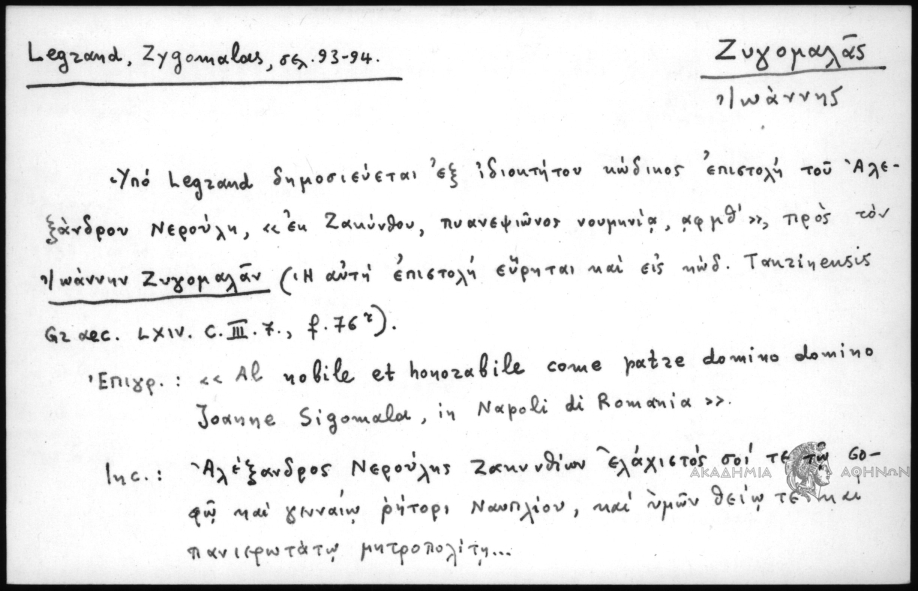 Legrand, Zygomalas, σελ. 93-94.
Ζυγομαλᾶς
Ἰωάννης
Ὑπό Legrand δημοσιεύεται ἐξ ἰδιοκτήτου κώδικος ἐπιστολή τοῦ Ἀλε-
ξάνδρου Νερούλη, «ἐκ Ζακύνθου, πυανεψιῶνος νουμηνίᾳ, αφμθʹ», πρὸς τὸν
Ἰωάννην Ζυγομαλᾶν (Ἡ αὐτή ἐπιστολή εὕρηται καί εἰς κώδ. Taurinensis
Graec. LXIV. C. III. 7., f. 76r).
Ἐπιγρ.: «Al nobile et honorabile come patre domino domino
Joanne Sigomala, in Napoli di Romania».
Inc.: Ἀλέξανδρος Νερούλης Ζακυνθίων ἐλάχιστός σοί τε τῷ σο-
φῷ καί γενναίῳ ῥήτορι Ναυπλίου, καί ὑμῶν θείῳ τε καί
πανιερωτάτῳ μητροπολίτῃ...
ΑΚΑΔΗΜΙΑ ΑΘΗΝΩΝ